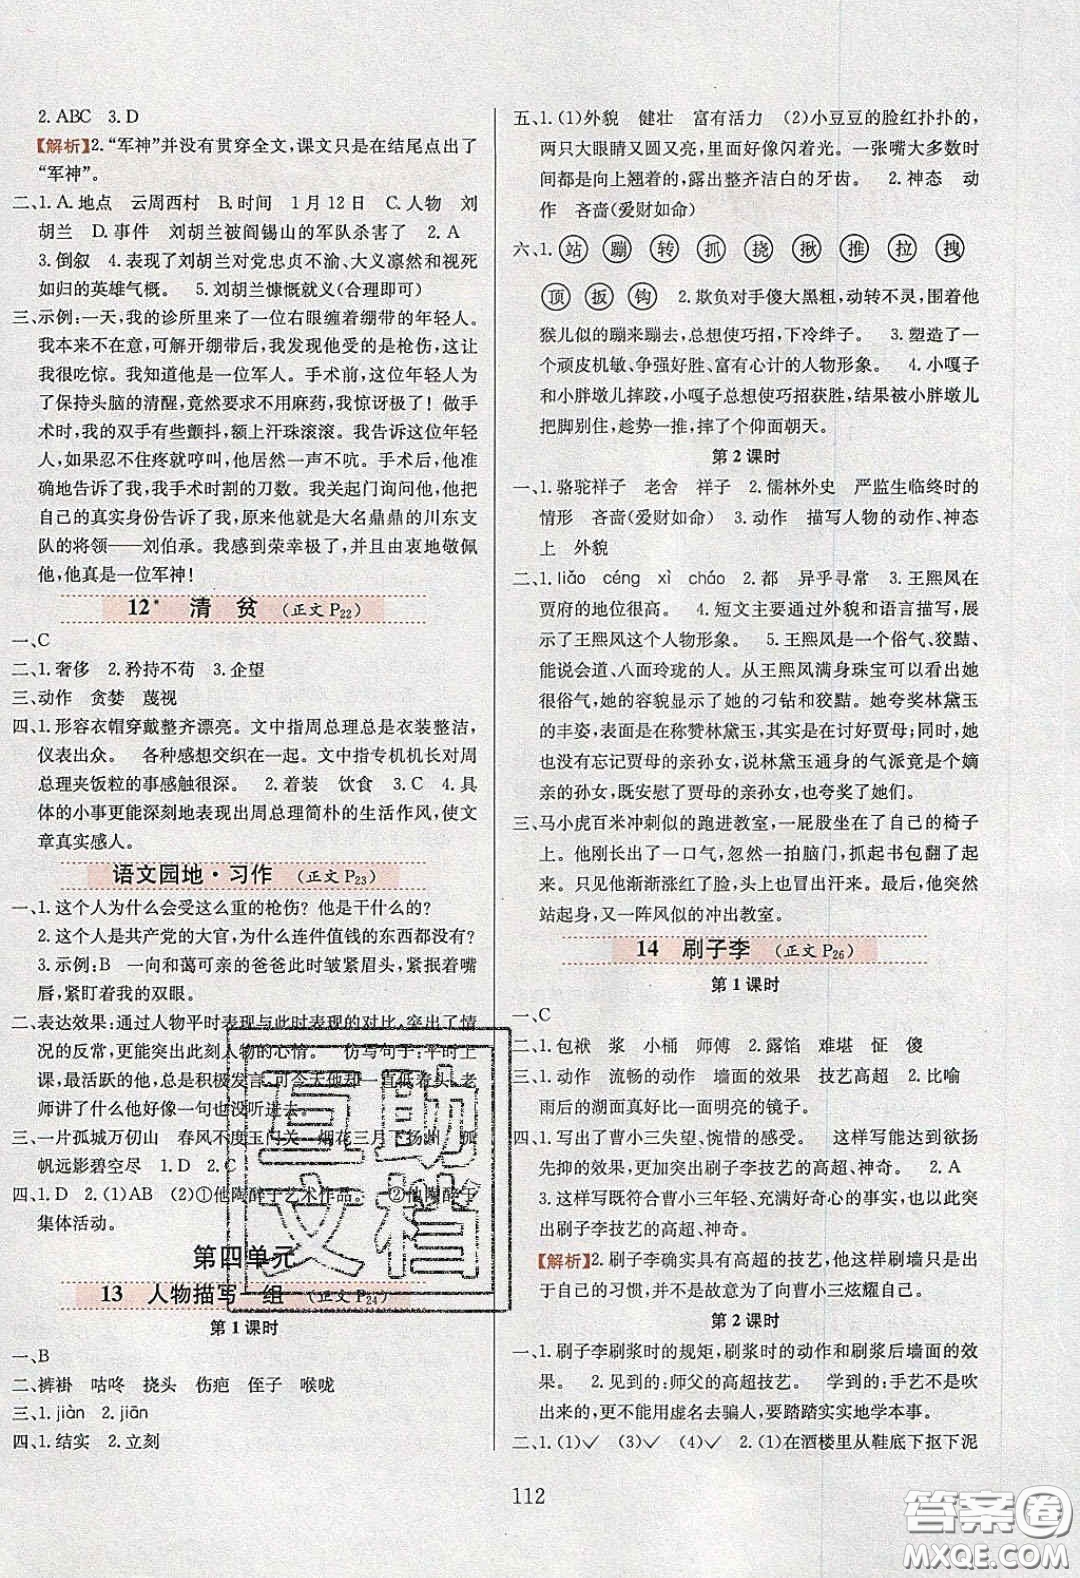 2. ABC 3. D
【解析】2.“军神”并没有贯穿全文,课文只是在结尾点出了
“军神”。
二、1. A. 地点 云周西村 B. 时间 1月12日 C. 人物 刘
胡兰 D. 事件 刘胡兰被阎锡山的军队杀害了 2. A
3. 倒叙 4. 表现了刘胡兰对党忠贞不渝、大义凛然和视死
如归的英雄气概。 5. 刘胡兰慷慨就义(合理即可)
三、示例:一天,我的诊所里来了一位右眼缠着绷带的年轻人。
我本来不在意,可解开绷带后,我发现他受的是枪伤,这让
我很吃惊。我知道他是一位军人。手术前,这位年轻人为
了保持头脑的清醒,竟然要求不用麻药,我惊讶极了! 做手
术时,我的双手有些颤抖,额上汗珠滚滚。我告诉这位年轻
人,如果忍受不住疼就哼叫,他居然一声不吭。手术后,他准
确地告诉了我,我手术时割的刀数。我关起门询问他,他把
自己的真实身份告诉了我,原来他就是大名鼎鼎的川东支
队的将领——刘伯承。我感到荣幸极了,由衷地敬佩
他,他真是一位军神!
12* 清 贫 (正文P22)
一、C
二、1. 奢侈 2. 矜持不苟 3. 企望
三、动作 贪婪 蔑视
四、1. 形容衣帽穿戴整齐漂亮。文中指周总理总是衣装整洁,
仪表出众。 各种感想交织在一起。文中指专机机长对周
总理夹饭粒的事感触很深。 2. 着装 饮食 3. C 4. 具
体的小事更能深刻地表现出周总理简朴的生活作风,使文
章真实感人。
语文园地·习作 (正文P23)
一、1. 这个人为什么会受这么重的枪伤? 他是干什么的?
2. 这个人是共产党的大官,为什么连件值钱的东西都没有?
3. 示例:B 一向和蔼可亲的爸爸此时皱紧眉头,紧咬着嘴
唇,紧盯着我的双眼。
二、表达效果:通过人物平时表现与此时表现的对比,突出了情
况的反常,更能突出此刻人物的心情。 仿写句子:平时上
课,最活跃的他,总是积极发言,可今天他却一直低着头,老
师讲了什么他好像一句也没听进去。
三、一片孤城万仞山 春风不度玉门关 烟花三月下扬州 孤
帆远影碧空尽 1. D 2. C
四、1. D 2. (1)AB (2)①他陶醉于艺术作品。 ②他陶醉于
集体活动。
第四单元
13 人物描写一组 (正文P24)
第1课时
一、B
二、裤褂 咕咚 挠头 伤疤 侄子 喉咙
三、1. jiàn 2. jiān
四、1. 结实 2. 立刻
五、1. (1)外貌 健壮 富有活力 (2)小豆豆的脸红扑扑的,
两只大眼睛又圆又亮,正好像闪着光芒。一张嘴大多数时
间都是弯弯翘着的,露出整齐洁白的牙齿。 2. 神态 动
作 吝啬(爱财如命)
六、1. 站 蹦 转 抓 挠 揪 推 拉 拽
顶 扳 钩 2. 欺负对手傻大黑粗,动转不灵,围着他
猴儿似的蹦来蹦去,总想使巧招,下冷绊子。 3. 塑造了一
个顽皮机敏、争强好胜、富有心计的人物形象。 4. 小嘎子
和小胖墩儿摔跤,小嘎子总想使巧招获胜,结果被小胖墩儿
别住了脚,趁势一推,摔了个仰面朝天。
第2课时
一、1. 骆驼祥子 老舍 祥子 2. 儒林外史 严监生临终时的
情形 吝啬(爱财如命) 3. 动作 描写人物的动作、神态
上 外貌
二、1. liǎo céng xì cháo 2. 都 异乎寻常 3. 王熙凤在
贾府的地位很高。 4. 短文主要通过外貌和语言描写,展
示了王熙凤这个人物形象。 5. 王熙凤是一个俗气、狡黠、
能说会道、八面玲珑的人。从王熙凤满身珠宝可以看出她
很俗气,眼部的描写显示了她的刁钻和狡黠。她夸奖林黛玉
的丰姿,表面是在称赞林黛玉,其实是在讨好贾母;同时,她
也没有忘记贾母的亲孙女,她说林黛玉的气派竟是个嫡
亲的孙女,恭维了贾母的亲孙女,也夸奖了她们。
三、马小虎百米冲刺似的跑进教室,一屁股坐在自己的椅子
上。他刚长出了一口气,忽然一拍脑门,抓起书包翻了起
来。只见他渐渐涨红了脸,脸上冒出了汗。最后,他突然
站起身,又一阵风似的冲出教室。
14 刷子李 (正文P26)
第1课时
一、C
二、1. 包袱 浆 小桶 师傅 2. 露馅 难堪 怔 傻
三、1. 动作 流畅的动作 墙面的效果 技艺高超 2. 比喻
雨后的湖面真好比一面明亮的镜子。
四、1. 写出了曹小三失望、惋惜的感受。 这样写能达到欲扬
先抑的效果,更能突出刷子李技艺的高超、神奇。 2. A
3. 这样写既符合曹小三年轻、充满好奇心的事实,也能突出
刷子李技艺的高超、神奇。
【解析】2. 刷子李确实具有高超的技艺,他这样刷墙只是出
于自己的习惯,并不是有意向曹小三炫耀自己。
第2课时
一、1. 刷子李刷浆时的规矩,刷浆时的动作和刷浆后墙面的效
果。 2. 见到的:师父的高超技艺。 学到的:手艺不是吹
出来的,不能用虚名去骗人,要踏踏实实地学本事。
二、1. (1)✓ (3)✓ (4)✓ 2. (1)在酒楼里从鞋底下抠下泥
112
互助
文档
答案圈
MXQE.COM